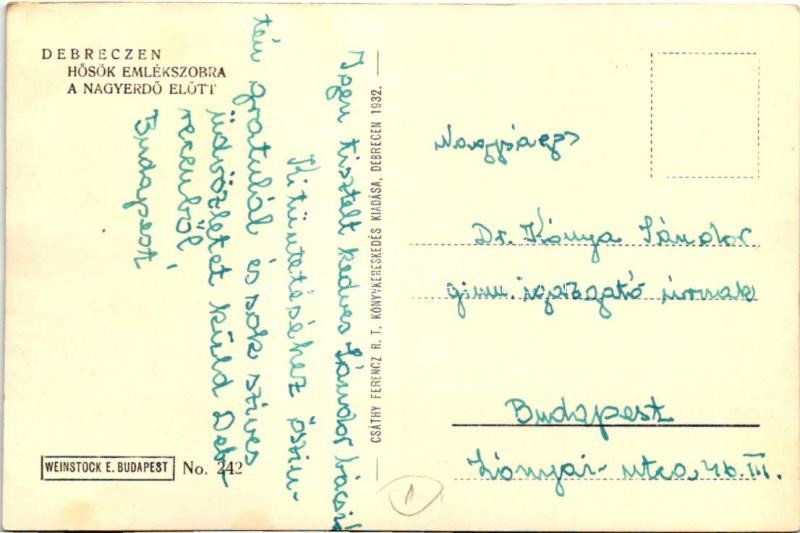 DEBRECZEN
HŐSÖK EMLÉKSZOBRA
A NAGYERDŐ ELŐTT
Igen tisztelt kedves Sándor bácsi!
Kitüntetéséhez őszin-
tén gratulál és sok szives
üdvözletet küld Deb-
recenből
Budapest
WEINSTOCK E. BUDAPEST No. 242
CSÁTHY FERENCZ R. T. KÖNYVKERESKEDÉS KIADÁSA, DEBRECEN 1932.
Nagyságos
Dr. Kónya Sándor
gimn. igazgató úrnak
Budapest
Lónyai-utca, 46. III.